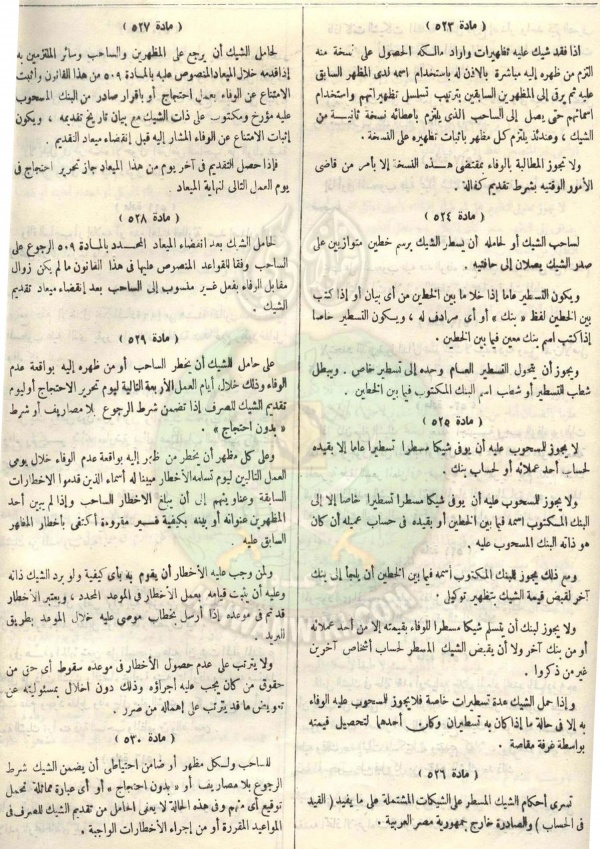 ( مادة ٥٢٣ )
اذا فقد شيك عليه تظهيرات واراد مالكه الحصول على نسخة منه
التزم من ظهره إليه مباشرة بالاذن له باستخدام اسمه لدى المظهر السابق
عليه ثم يرقى إلى المظهرين السابقين بترتيب تسلسل تظهيراتهم واستخدام
اسمائهم حتى يصل إلى الساحب الذى يلتزم باعطائه نسخة ثانيسة من
الشيك ، وعندئذ يلتزم كل مظهر باثبات تظهيره على النسخة .
ولا تجوز المطالبة بالوفاء بمقتضى هذه النسخة إلا بأمر من قاضى
الأمور الوقتيه بشرط تقديم كفالة .
( مادة ٥٢٤ )
لساحب الشيك أو لحامله أن يسطر الشيك برسم خطين متوازيين على
صدر الشيك يصلان إلى حافتيه .
ويكون التسطير عاما إذا خلا ما بين الخطين من أى بيان أو إذا كتب
بين الخطين لفظ « بنك » أو أى مرادف له ، ويكون التسطير خاصا
إذا كتب اسم بنك معين فيما بين الخطين .
ويجوز أن يتحول التسطير العام وحده إلى تسطير خاص . ويبطل
شطب التسطير أو شطب اسم البنك المكتوب فيما بين الخطين .
( مادة ٥٢٥ )
لا يجوز للمسحوب عليه أن يوفى شيكا مسطرا تسطيرا عاما إلا بقيده
لحساب أحد عملائه أو لحساب بنك .
ولا يجوز للمسحوب عليه أن يوفى شيكا مسطرا تسطيرا خاصا إلا إلى
البنك المكتوب اسمه فيما بين الخطين أو بقيده فى حساب عميله أن كان
هو ذاته البنك المسحوب عليه .
ومع ذلك يجوز للبنك المكتوب أسمه فيما بين الخطين أن يلجأ إلى بنك
آخر لقبض قيمة الشيك بتظهير توكيلى .
ولا يجوز لبنك أن يتسلم شيكا مسطرا للوفاء بقيمته إلا من أحد عملائه
أو من بنك آخر ولا أن يقبض الشيك المسطر لحساب أشخاص آخرين
غير من ذكروا .
وإذا حمل الشيك عدة تسطيرات خاصة فلا يجوز للمسحوب عليه الوفاء
به إلا فى حالة ما إذا كان به تسطيران وكان أحدهما لتحصيل قيمته
بواسطة غرفة مقاصة .
( مادة ٥٢٦ )
تسرى أحكام الشيك المسطر على الشيكات المشتملة على ما يفيد ( القيد
فى الحساب ) والصادرة خارج جمهورية مصر العربية .
( مادة ٥٢٧ )
لحامل الشيك أن يرجع على المظهرين والساحب وسائر الملتزمين به
إذا قدمه خلال الميعاد المنصوص عليه بالمادة ٥٠٩ من هذا القانون وأثبت
الامتناع عن الوفاء بعمل احتجاج أو باقرار صادر من البنك المسحوب
عليه مؤرخ ومكتوب على ذات الشيك مع بيان تاريخ تقديمه ، ويكون
إثبات الامتناع عن الوفاء المشار إليه قبل إنقضاء ميعاد التقديم .
فإذا حصل التقديم فى آخر يوم من هذا الميعاد جاز تحرير احتجاج فى
يوم العمل التالى لنهاية الميعاد .
( مادة ٥٢٨ )
لحامل الشيك بعد انقضاء الميعاد المحدد بالمادة ٥٠٩ الرجوع على
الساحب وفقا للقواعد المنصوص عليها فى هذا القانون ما لم يكن زوال
مقابل الوفاء بفعل غير منسوب إلى الساحب بعد إنقضاء ميعاد تقديم
الشيك .
( مادة ٥٢٩ )
على حامل للشيك أن يخطر الساحب أو من ظهره إليه بواقعة عدم
الوفاء وذلك خلال أيام العمل الأربعة التالية ليوم تحرير الاحتجاج أو ليوم
تقديم الشيك للصرف إذا تضمن شرط الرجوع بلا مصاريف أو شرط
« بدون احتجاج » .
وعلى كل مظهر أن يخطر من ظهر إليه بواقعة عدم الوفاء خلال يومى
العمل التاليين ليوم تسلمه الأخطار مبينا له أسماء الذين قدموا الاخطارات
السابقة وعناوينهم إلى أن يبلغ الاخطار الساحب وإذا لم يبين أحد
المظهرين عنوانه أو بينه بكيفية غير مقروءة أكتفى بأخطار المظهر
السابق عليه .
ولمن وجب عليه الأخطار أن يقوم به بأى كيفية ولو برد الشيك ذاته
وعليه أن يثبت قيامه بعمل الأخطار فى الموعد المحدد ، ويعتبر الأخطار
قد تم فى موعده إذا أرسل بخطاب موصى عليه خلال الموعد بطريق
البريد .
ولا يترتب على عدم حصول الأخطار فى موعده سقوط أى حق من
حقوق من كان يجب عليه أجراؤه وذلك دون اخلال بمسئوليته عن
تعويض ما قد يترتب على إهماله من ضرر .
( مادة ٥٣٠ )
للساحب ولكل مظهر أو ضامن احتياطى أن يضمن الشيك شرط
الرجوع بلا مصاريف أو « بدون احتجاج » أو أى عبارة مماثلة تحمل
توقيع أى منهم وفى هذه الحالة لا يعفى الحامل من تقديم الشيك للصرف فى
المواعيد المقررة أو من إجراء الأخطارات الواجبة .